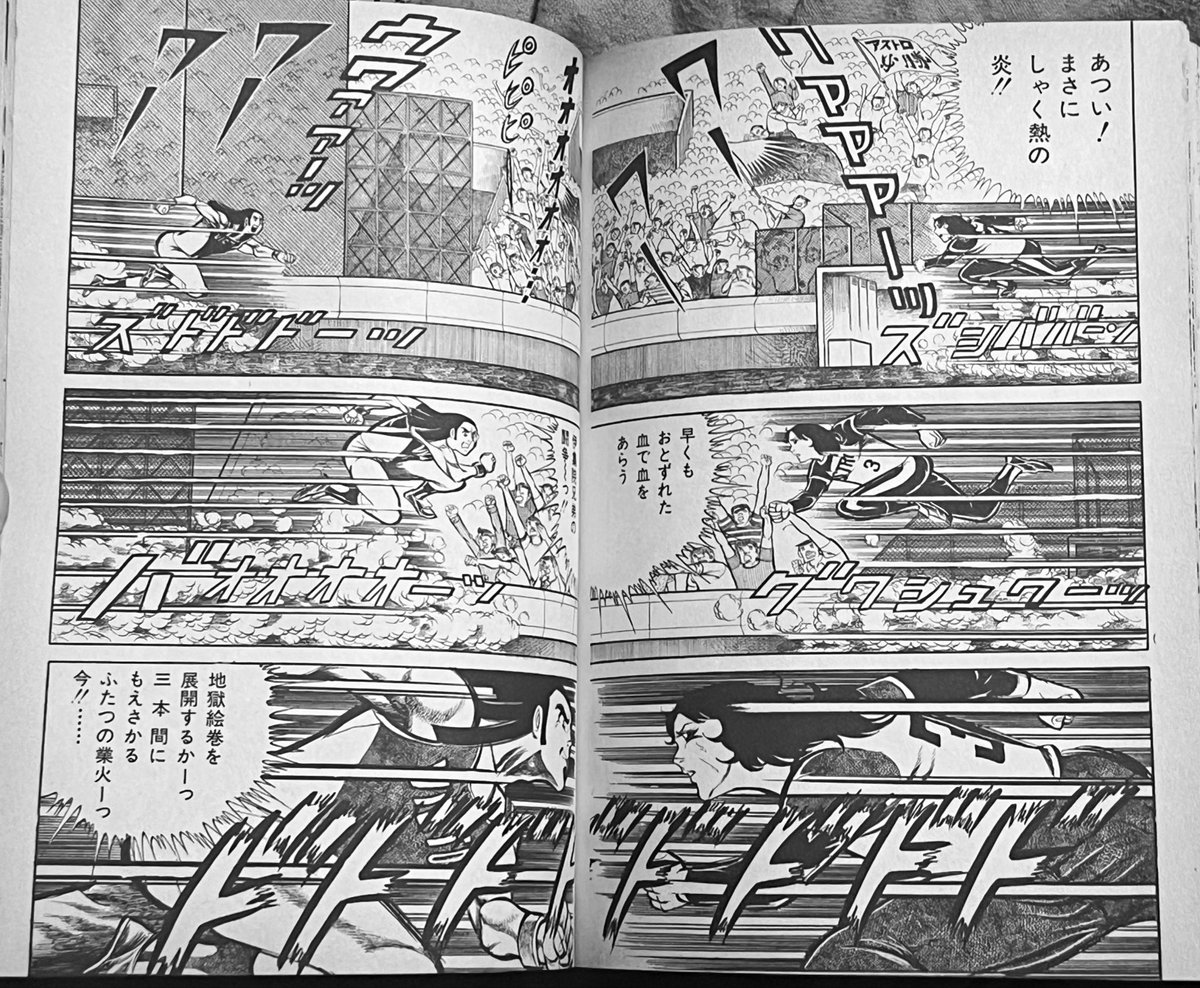 あつい！
まさに
しゃく熱の
炎!!
アストロ
必勝
ワアアアーッ
ワァ
ズシバババーン
オオオオオオオ…
ピピピピ
ウワァァーッ
ワァワァ
ズドドドドーーッ
早くも
おとずれた
血で血を
あらう
3
グワシュワーッ
闘争〜っ!!
バオオオオオーッ
3
ドドドド
地獄絵巻を
展開するかーっ
三本間に
もえさかる
ふたつの業火ーっ
今!!……
ドドドド